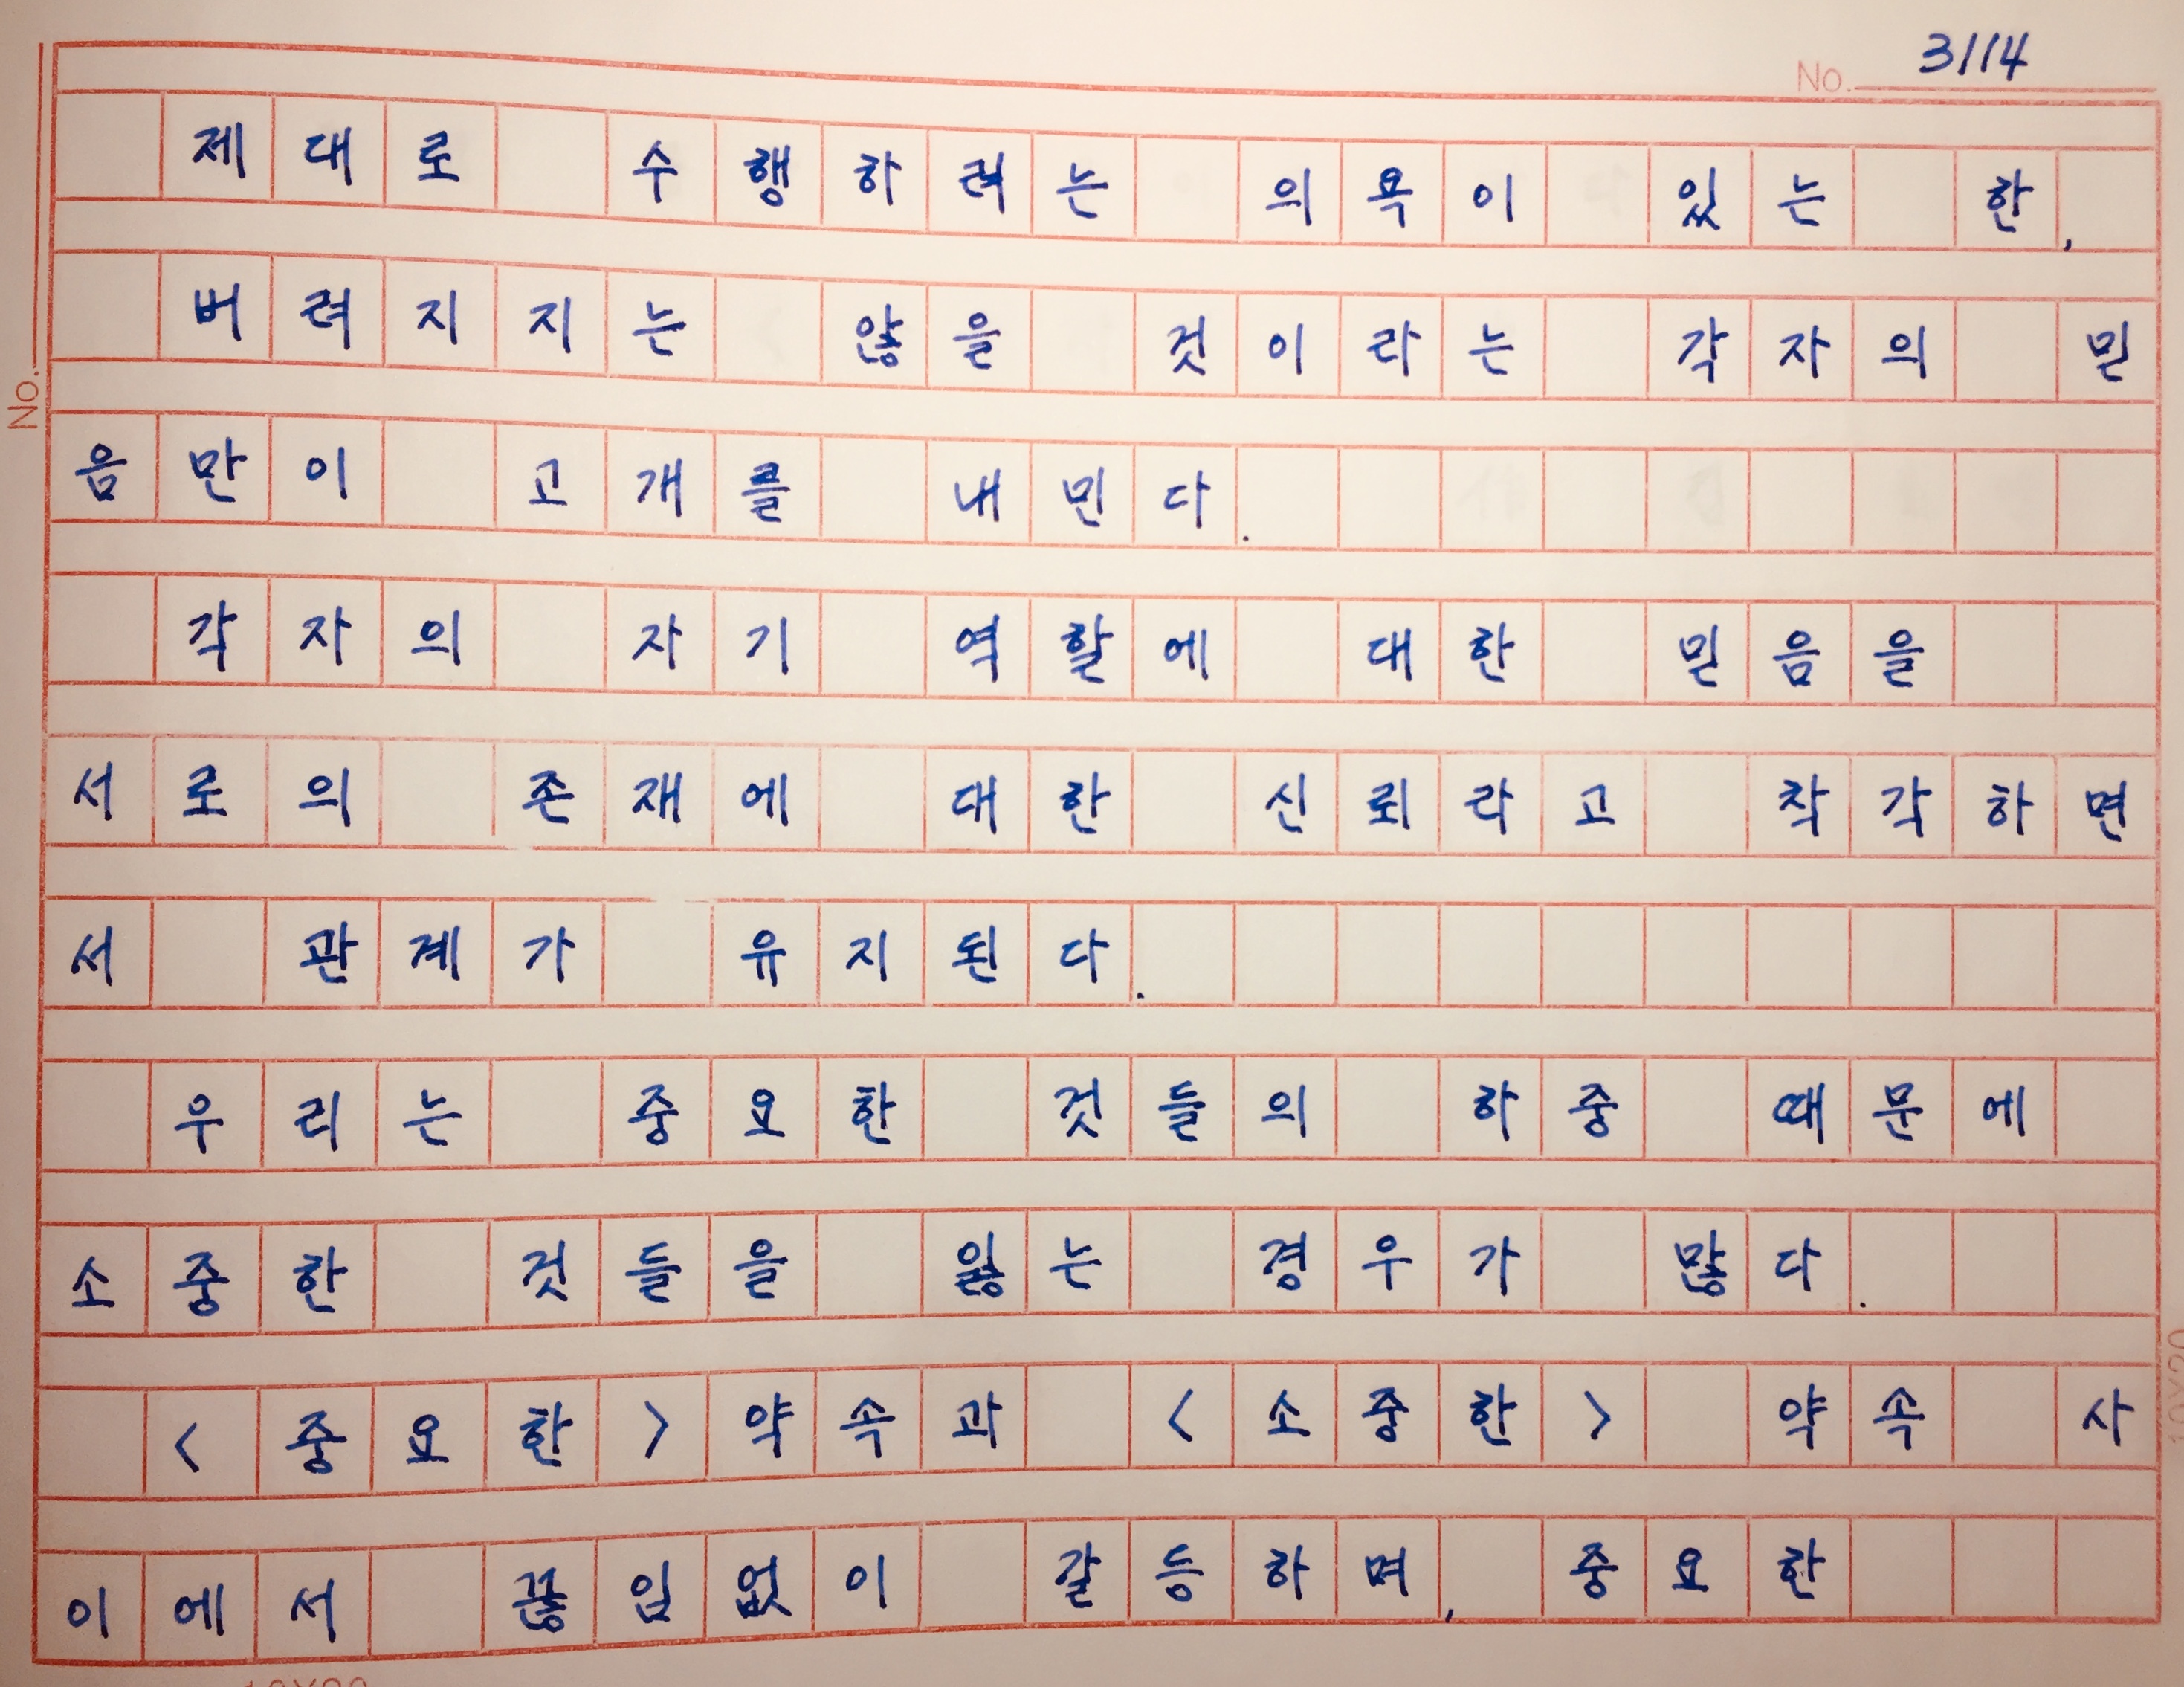 No. 3/14
제대로 수행하려는 의욕이 있는 한,
버려지지는 않을 것이라는 각자의 믿
음만이 고개를 내민다.
각자의 자기 역할에 대한 믿음을
서로의 존재에 대한 신뢰라고 착각하면
서 관계가 유지된다.
우리는 중요한 것들의 하중 때문에
소중한 것들을 잃는 경우가 많다.
<중요한>약속과 <소중한> 약속 사
이에서 끊임없이 갈등하며, 중요한
No.